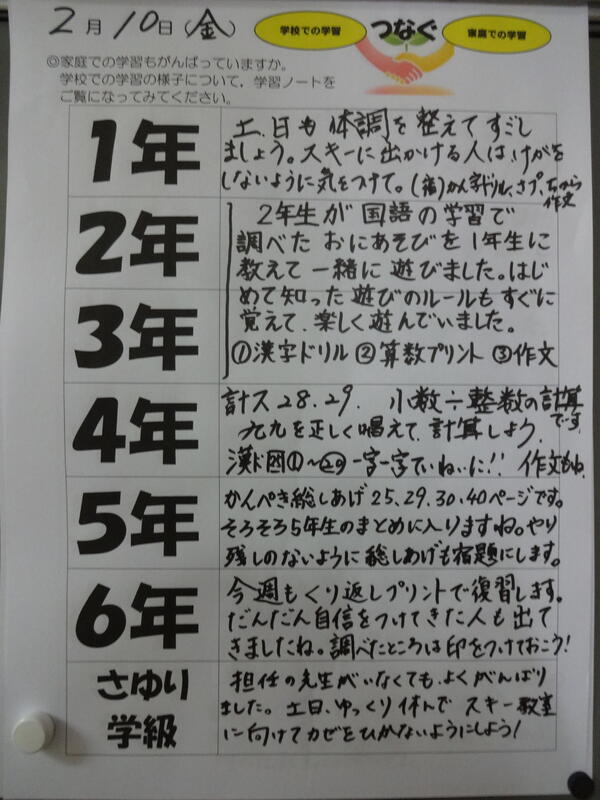 2月10日(金)
学校での学習
つなぐ
家庭での学習
◎家庭での学習もがんばっていますか。
学校での学習の様子について，学習ノートを
ご覧になってみてください。
1年
土、日も体調を整えてすごし
ましょう。スキーに出かける人はけがを
しないように気をつけて。(宿)かん字ドリル、さプ、
作文
2年
3年
2年生が国語の学習で
調べたおにあそびを1年生に
教えて一緒に遊びました。はじ
めて知った遊びのルールもすぐに
覚えて、楽しく遊んでいました。
①漢字ドリル ②算数プリント ③作文
4年
計ス28.29. 小数÷整数の計算
です。
九九を正しく唱えて、計算しよう。
漢ド ①〜 一字一字ていねいに!! 作文もね
5年
かんぺき総しあげ25、29、30、40ページです。
そろそろ5年生のまとめに入りますね。やり
残しのないように総しあげも宿題にします。
6年
今週もくり返しプリントで復習します。
だんだん自信をつけてきた人も出て
きましたね。調べたところは印をつけておこう!
さゆり
学級
担任の先生がいなくても、よくがんばり
ました。土日、ゆっくり休んでスキー教室
に向けてカゼをひかないようにしよう!